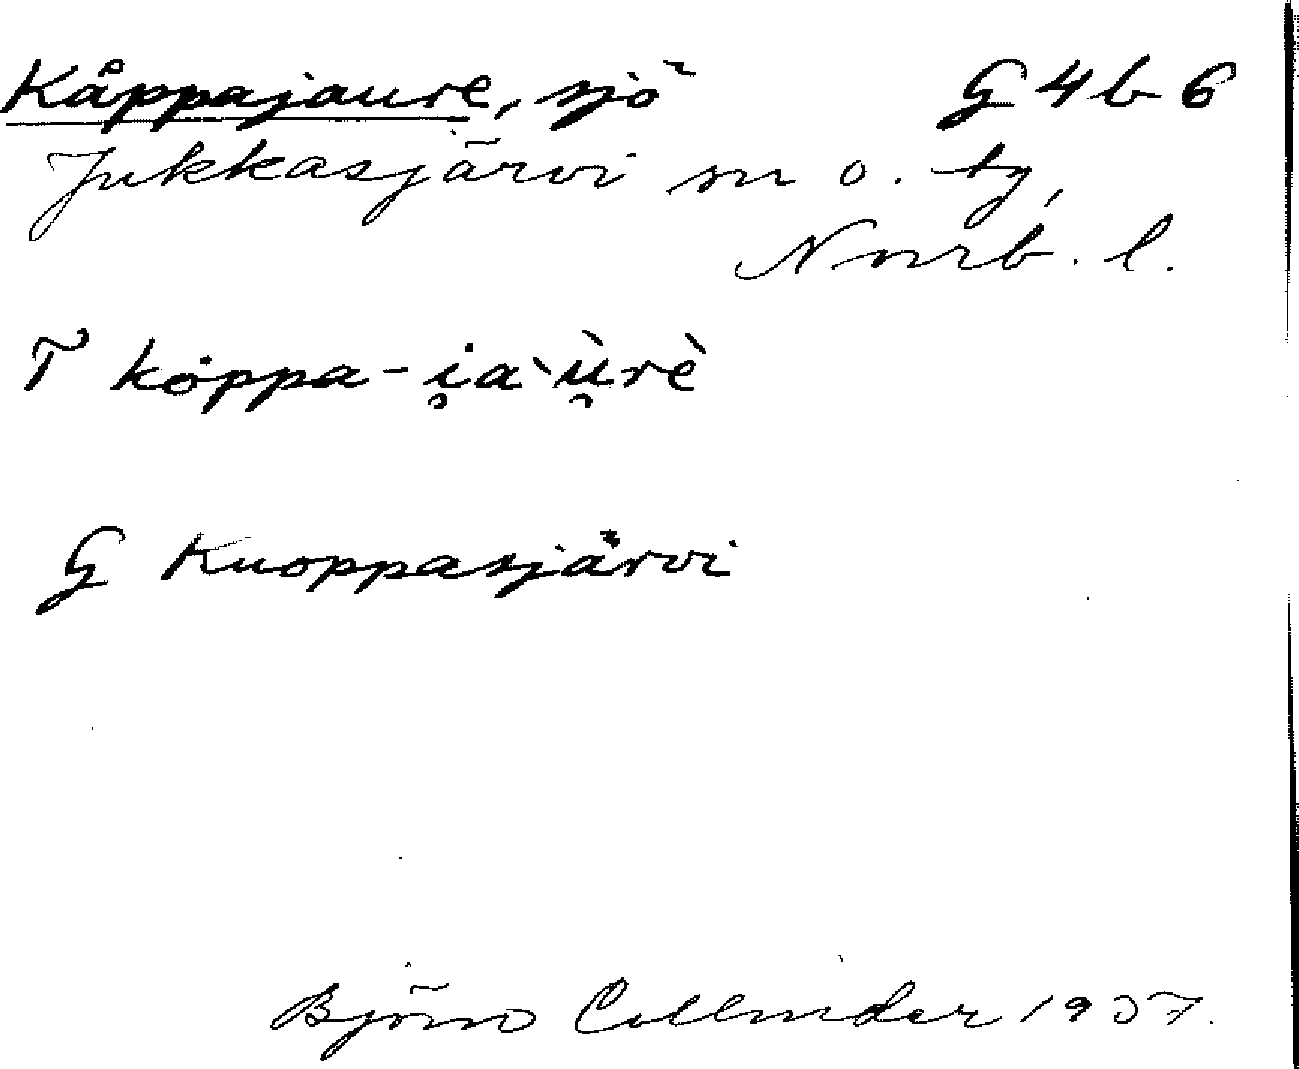 Kåppajaure, sjö G 4 b 6
Jukkasjärvi sn o. tg,
Norrb. l.
T kȧppa-i̯a`ù̯rè
G Kuoppasjärvi
Björn Collinder 1957.